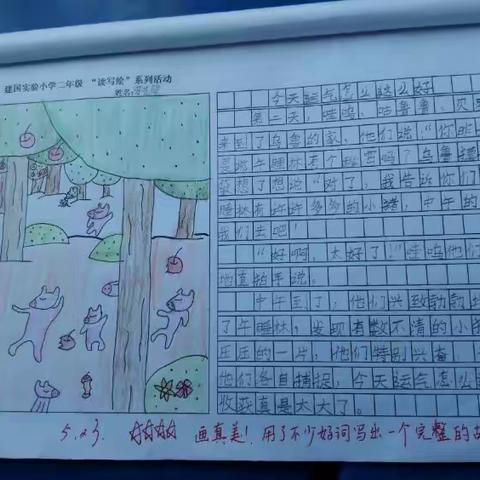 建国实验小学二年级 “读写绘”系列活动
姓名:
今天运气怎么这么好
第二天,哇呜、咕噜鲁、贝
来到了乌鲁的家,他们说“你昨
是说午睡林有个秘密吗?乌鲁
想了想说“对了,我告诉你们
睡林有许许多多的小猪,中午的
我们去吧!
“好啊,太好了!”哇呜他们
地直拍手说。
中午到了,他们兴致勃勃地
了午睡林,发现有数不清的小
压压的一片,他们特别兴奋,
他们各自捕捉,今天运气怎么
收获真是太大了。
5.23. ☆☆☆☆ 画真美!用了不少好词写出一个完整的故